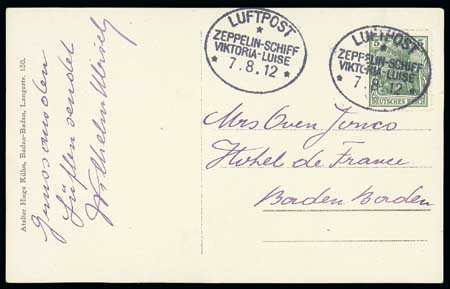 Atelier Hugo Kühn, Baden-Baden, Langestr. 150.
Gruss aus den
Lüften sendet
Wilhelm
LUFTPOST
ZEPPELIN-SCHIFF
VIKTORIA-LUISE
* 7.8.12 *
LUFTPOST
ZEPPELIN-SCHIFF
VIKTORIA-LUISE
* 7.8.12 *
5
DEUTSCHES REICH
Mrs Owen Jones
Hotel de France
Baden Baden